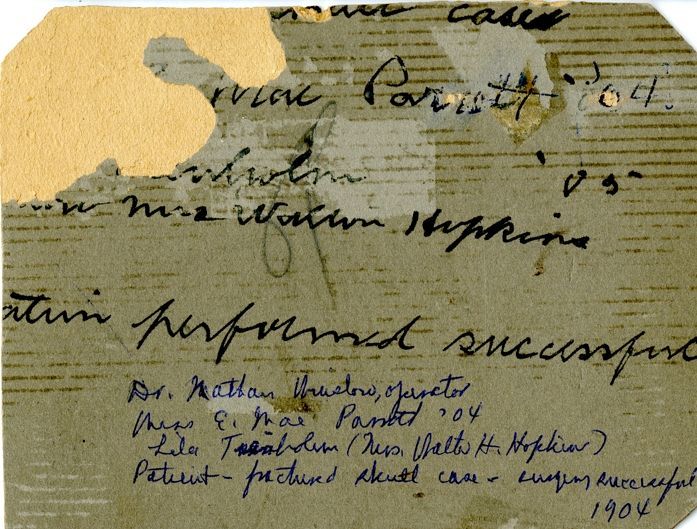 skull cases
Mae Parrott '04.
nholm '05
now Mrs Walton Hopkins
ation performed successful
Dr. Nathan Winslow, operator
Miss E. Mae Parrott '04
Lila Trenholm (Mrs. Walter H. Hopkins)
Patient - fractured skull case - surgery successful
1904